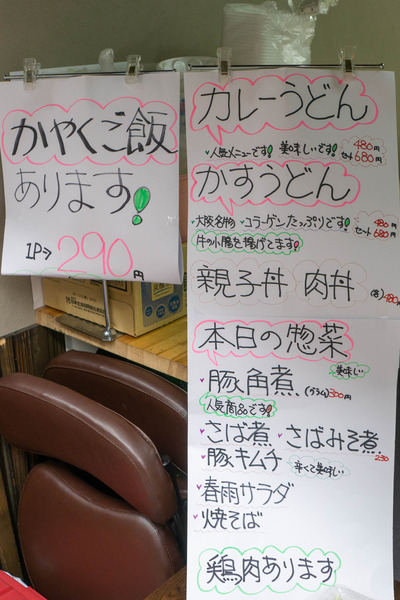 かやくご飯
あります!
1P→290円
カレーうどん
・人気メニューです! 美味しいです! 480円
セット680円
かすうどん
・大阪名物・コラーゲンたっぷりです! 480円
セット680円
牛の小腸を揚げてます!
親子丼 肉丼 (各)480円
本日の惣菜
美味しい
豚角煮 300円
人気商品です!
さば煮 ・さばみそ煮 230
豚キムチ 辛くて美味しい
春雨サラダ
焼そば
鶏肉あります